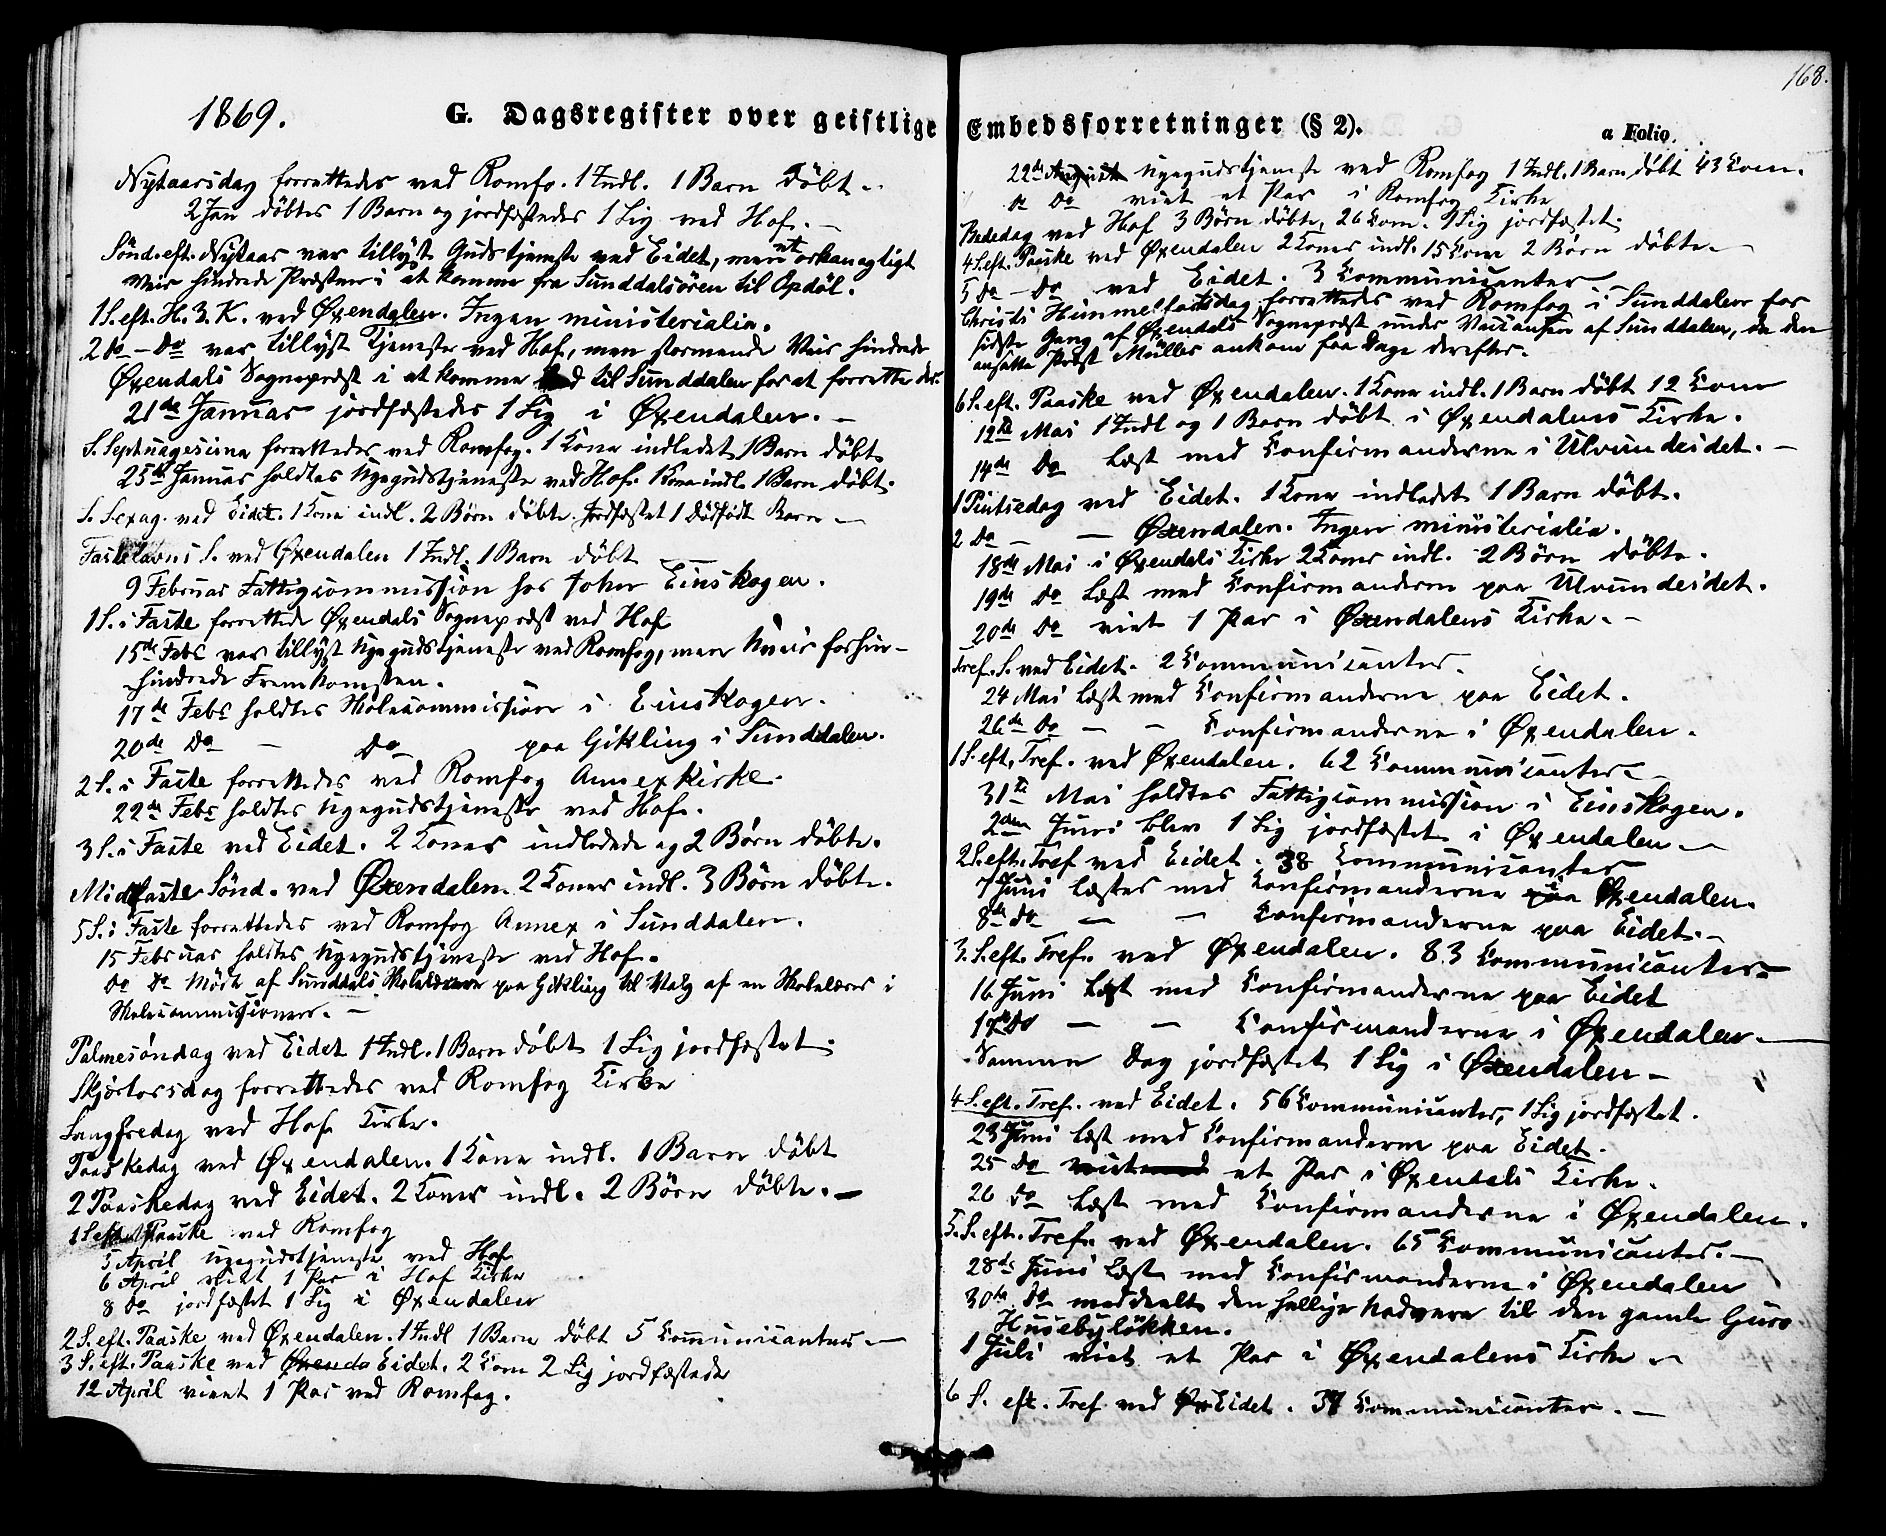 1869.
G. Dagsregister over geistlige
Nytaarsdag forrettedes ved Romfo. 1 Indl. 1 Barn døbt. -
2 Jan døbtes 1 Barn og jordfæstedes 1 Lig ved Hof. -
Sönd. eft. Nytaar var tillyst Gudstjeneste ved Eidet, men et orkanagligt
Veir hindrede Præsten i at komme fra Sunddalsören til Opdöl.
1 S. eft. H. 3. K. ved Øxendalen. Ingen ministerialia.
2 Do - Do var tillyst Tjeneste ved Hof, men stormende Veir hindrede
Øxendals Sognepræst i at komme til Sunddalen for at forrette der.
21de Januar jordfæstedes 1 Lig i Øxendalen. -
S. Septuagesima forrettedes ved Romfog. 1 Kone indledet 1 Barn døbt
25de Januar holdtes Ugegudstjeneste ved Hof. 1 Kone indl. 1 Barn døbt.
S. Sexag. ved Eidet. 1 Kone indl. 2 Børn døbte. Jordfæstet 1 Dødfødt Barn -
Fastelavns S. ved Øxendalen 1 Indl. 1 Barn døbt
9 Februar Fattigcommission hos John Einskogen.
1 S. i Faste forrettede Øxendals Sognepræst ved Hof
15de Febr var tillyst Ugegudstjeneste ved Romfog, men Uveir forhin-
hindrede Fremkomsten.
17de Febr holdtes Skolecommission i Einskogen.
20de Do - Do paa Gikling i Sunddalen.
2 S. i Faste forrettedes ved Romfog Annexkirke.
22de Febr holdtes Ugegudstjeneste ved Hof.
3 S. i Faste ved Eidet. 2 Koner indledede og 2 Børn døbte.
Midfaste Sønd. ved Øxendalen. 2 Koner indl. 3 Børn døbte.
5 S. i Faste forrettedes ved Romfog Annex i Sunddalen.
15 Februar holdtes Ugegudstjeneste ved Hof.
Do Do Møde af Sunddals Skolelærere paa Gikling til Valg af en Skolelærer i
Skolecommissionen. -
Palmesøndag ved Eidet 1 Indl. 1 Barn døbt 1 Lig jordfæstet.
Skjærtorsdag forrettedes ved Romfog Kirke
Langfredag ved Hofs Kirke.
Paaskedag ved Øxendalen. 1 Kone indl. 1 Barn døbt
2 Paaskedag ved Eidet. 2 Koner indl. 2 Børn døbte. -
1 S. eft. Paaske ved Romfog
5 April Ugegudstjeneste ved Hof
6 April viet 1 Par i Hof Kirke
8 Do jordfæstet 1 Lig i Øxendalen
2 S. eft. Paaske ved Øxendalen. 1 Indl 1 Barn døbt 5 Communicanter -
3 S. eft. Paaske ved Øxenda Eidet. 2 Com 2 Lig jordfæstede
12 April viet 1 Par ved Romfog.
168.
Embedsforretninger (§ 2).
a Folio
22de August Ugegudstjeneste ved Romfog 1 Indl. 1 Barn døbt 43 Com.
Do Do viet et Par i Romfog Kirke
Bededag ved Hof 3 Børn døbte, 26 Com. 1 Lig jordfæstet.
4 S. eft. Paaske ved Øxendalen 2 Koner indl. 15 Com 2 Børn døbte. -
5 Do - Do ved Eidet. 3 Communicanter
Christi Himmelfartsdag forrettedes ved Romfog i Sunddalen for
sidste Gang af Øxendals Sognepræst under Vacansen af Sunddalen, da den
ansatte Præst Müller ankom faa Dage derefter.
6 S. eft. Paaske ved Øxendalen. 1 Kone indl. 1 Barn døbt 12 Com
12te Mai 1 Indl og 1 Barn døbt i Øxendalens Kirke.
14de Do Læst med Confirmanderne i Ulvundeidet. -
1 Pintsedag ved Eidet. 1 Kone indledet 1 Barn døbt.
2 Do - - Øxendalen. Ingen ministerialia.
18de Mai i Øxendals Kirke 2 Koner indl. 2 Børn døbte.
19de Do Læst med Confirmanderne paa Ulvundeidet.
20de Do viet 1 Par i Øxendalens Kirke. -
Tref. S. ved Eidet. 2 Communicanter.
24 Mai Læst med Confirmanderne paa Eidet.
26de Do - - Confirmanderne i Øxendalen.
1 S. eft. Tref. ved Øxendalen. 62 Communicanter. -
31te Mai holdtes Fattigcommission i Einskogen.
2den Juni blev 1 Lig jordfæstet i Øxendalen -
2 S. eft. Tref ved Eidet. 38 Communicanter
7 Juni læstes med Confirmanderne i Øxendalen.
8de Do - - Confirmanderne paa Eidet. -
3. S. eft. Tref. ved Øxendalen. 83 Communicanter -
16 Juni Læst med Confirmanderne paa Eidet
17de Do - - Confirmanderne i Øxendalen. -
Samme Dag jordfæstet 1 Lig i Øxendalen -
4 S. eft. Tref. ved Eidet. 56 Communicanter, 1 Lig jordfæstet.
23 Juni Læst med Confirmanderne paa Eidet.
25 Do viet et Par i Øxendals Kirke.
26 Do Læst med Confirmanderne i Øxendalen.
5. S. eft. Tref. ved Øxendalen. 65 Communicanter. -
28de Juni Læst med Confirmanderne i Øxendalen
30te Do meddeelt den hellige Nadvere til den gamle Guro
Husebyløkken.
1 Juli viet et Par i Øxendalens Kirke -
6 S. eft. Tref ved Øx Eidet. 37 Communicanter. -